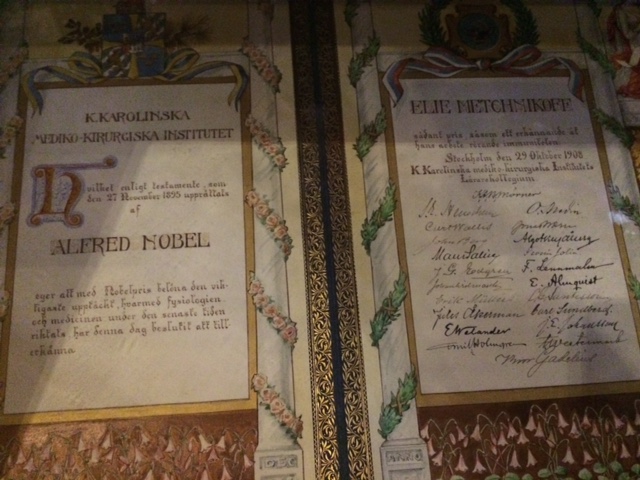 K. KAROLINSKA
MEDIKO-KIRURGISKA INSTITUTET
hvilket enligt testamente, som
den 27 November 1895 upprättats
af
ALFRED NOBEL
eger att med Nobelpris belöna den vik-
tigaste upptäckt, hvarmed fysiologien
och medicinen under den senaste tiden
riktats har denna dag beslutit att till-
erkänna
ELIE METCHNIKOFF
sådant pris såsom ett erkännande åt
hans arbete rörande immuniteten
Stockholm den 29 Oktober 1908
K. Karolinska mediko-kirurgiska Institutets
Lärarekollegium
Mörner
Curt Wallis
F. Lennmalm
E. Almquist
Jules Åkerman Carl Sundberg
E Welander J. E. Johansson
Emil Holmgren Westermark
Gadelius